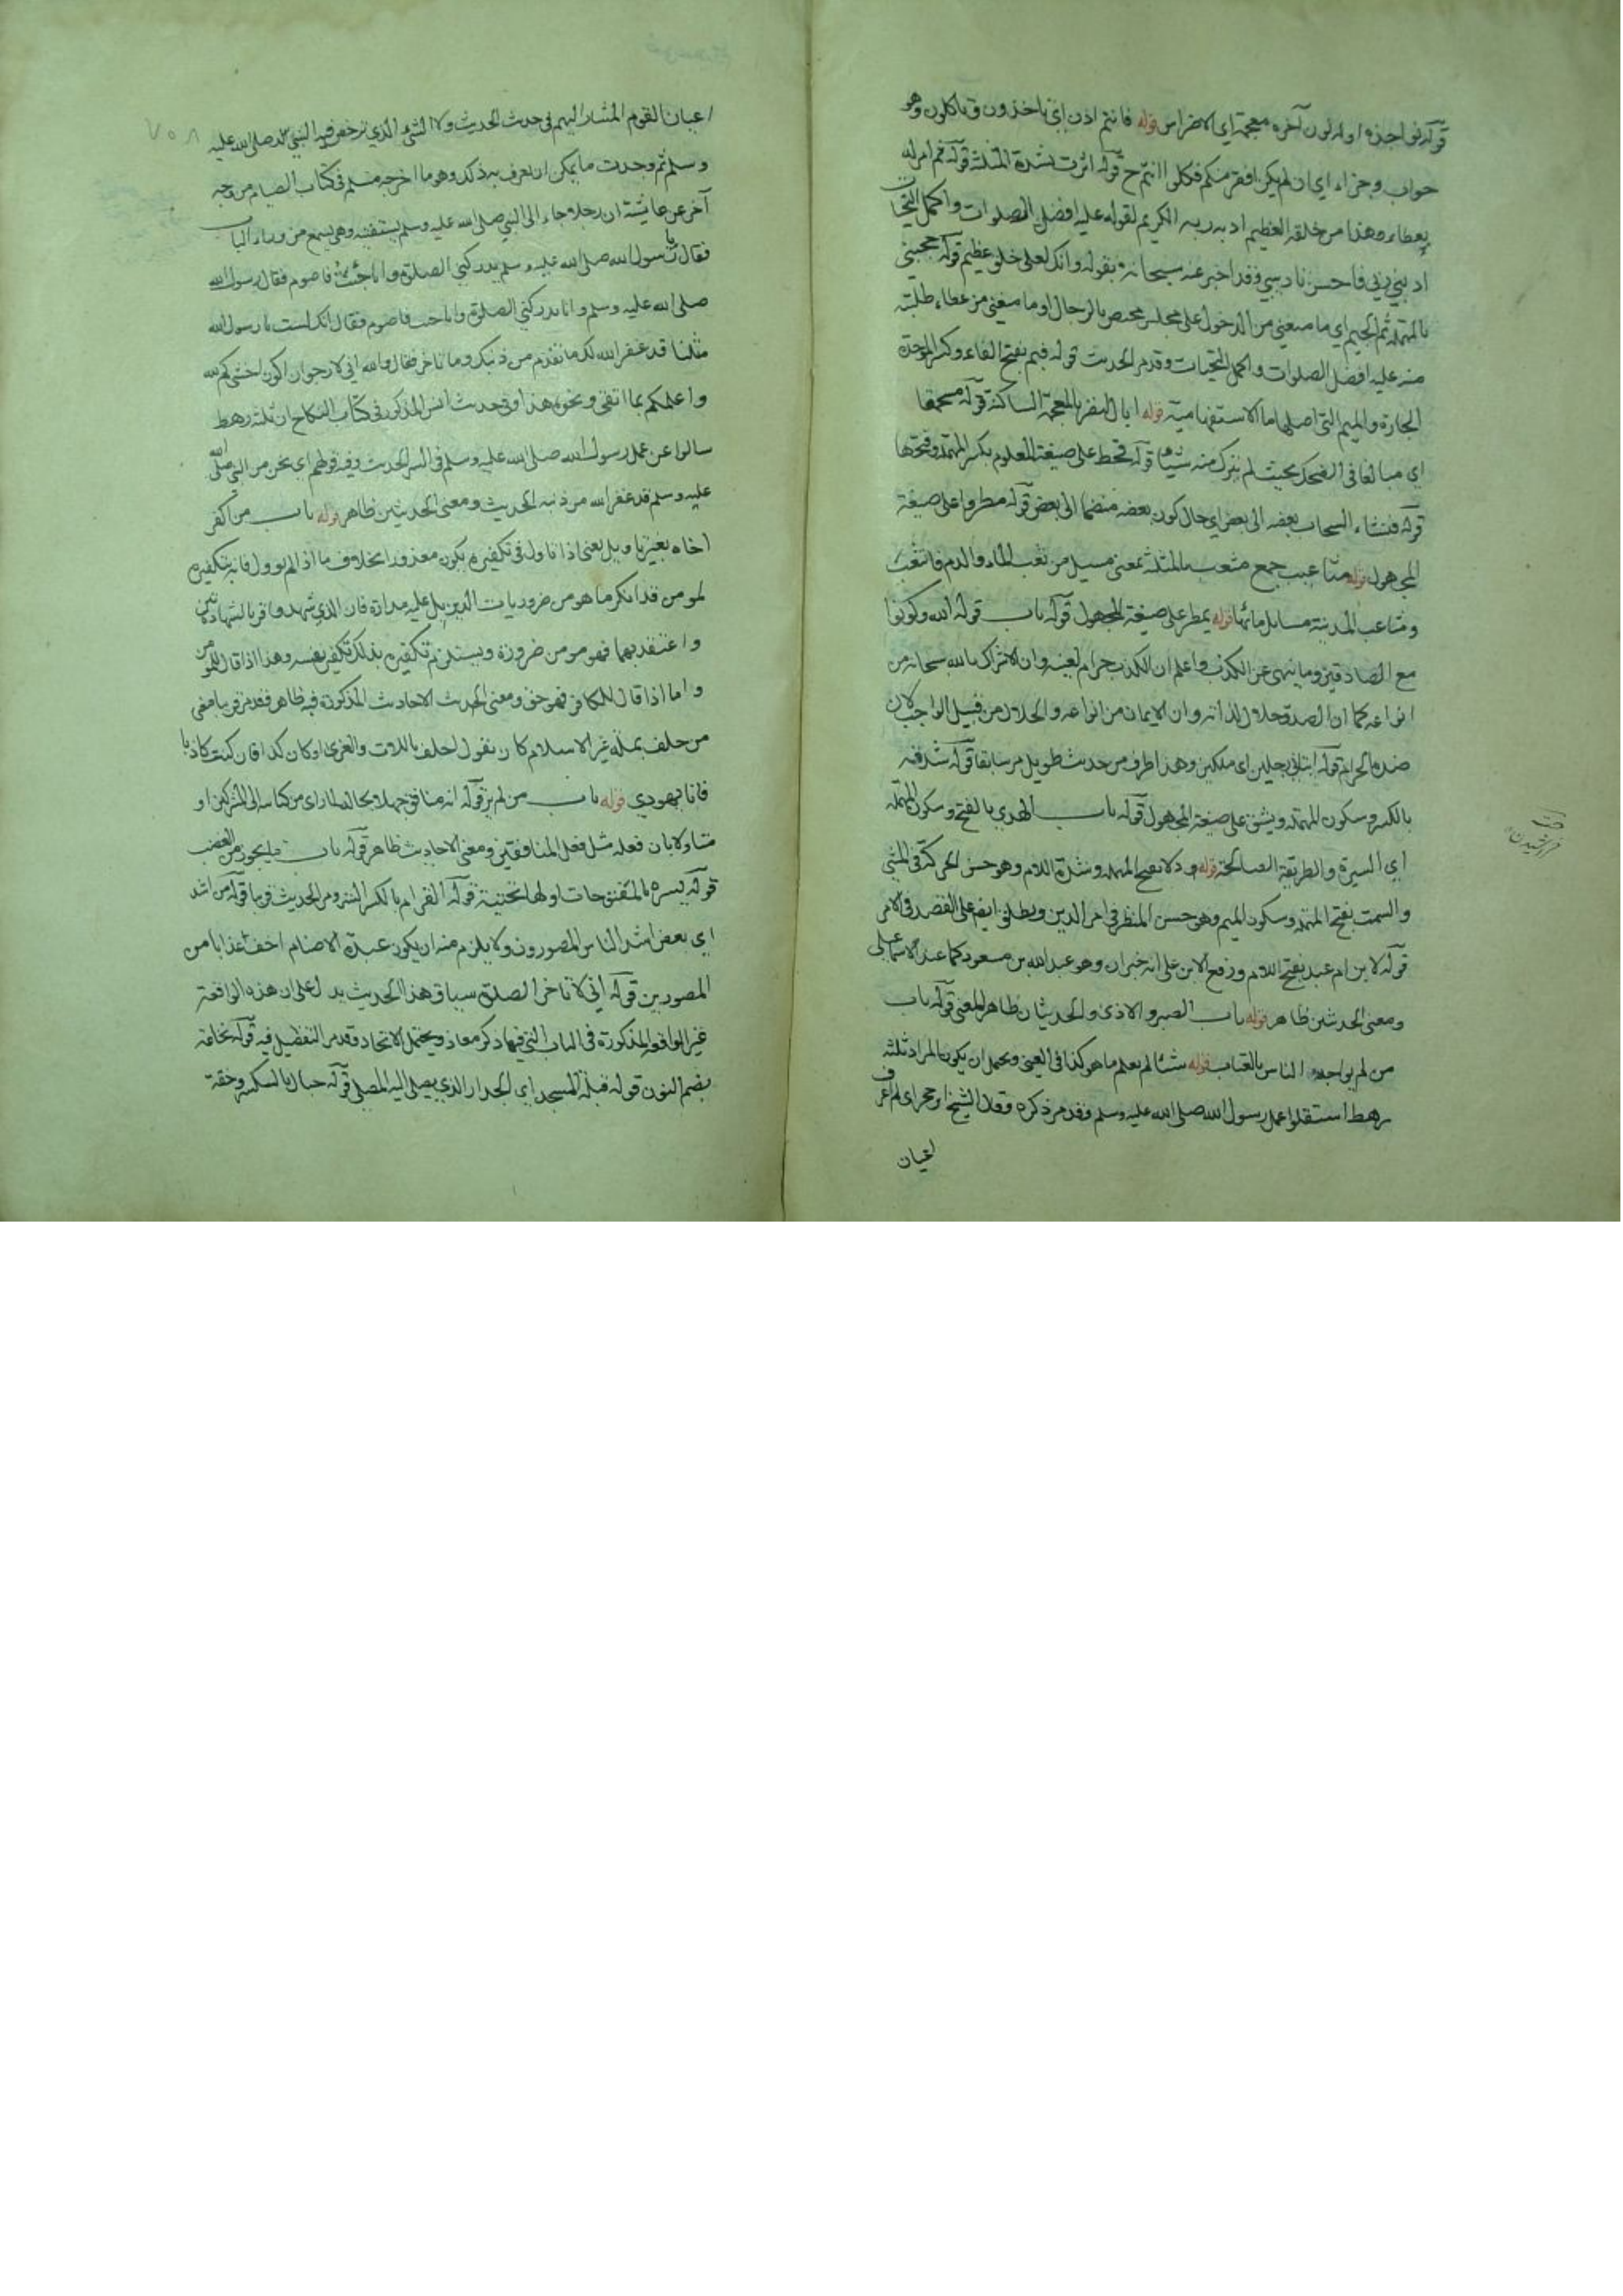 قوله نواجذه اوله نون آخره معجمة اي الاضراس قوله فانتم اذن اي تاخذون وتاكلون وهو
جواب وجزاء اي ان لم يكن افقر منكم فكلوا انتم ح قوله اثرت بشدة المثلثة قوله ثم امر له
بعطاء وهذا من خلقه العظيم ادبه ربه الكريم لقوله عليه افضل الصلوات واكمل التحيات
ادبني ربي فاحسن تاديبي وقد اخبر عنه سبحانه بقوله وانك لعلى خلق عظيم قوله حجبني
بالمهملة ثم الجيم اي ما منعني من الدخول على مجلس مختص بالرجال او ما منعني من عطاء طلبته
منه عليه افضل الصلوات واكمل التحيات وقد مر الحديث قوله فبم بفتح الفاء وكسر الموحدة
الجارة والميم التي اصلها ما الاستفهامية قوله ابال النفر بالمعجمة الساكنة قوله مستجمعا
اي مبالغا في الضحك بحيث لم يترك منه شيئا قوله قحط على صيغة المعلوم بكسر المهملة وفتحها
قوله فنشاء السحاب بعضه الى بعض اي حال كون بعضه منضما الى بعض قوله مطروا على صيغة
المجهول قوله مثاعب جمع مثعب بالمثلثة بمعنى مسيل من ثعب الماء والدم فانثعب
ومثاعب المدينة مسايل مائها قوله يمطر على صيغة المجهول قوله باب قول الله وكونوا
مع الصادقين وما ينهى عن الكذب واعلم ان الكذب حرام لعينه وان الاشراك بالله سبحانه من
انواعه كما ان الصدق حلال لذاته وان الايمان من انواعه والحلال من قبيل الواجب لان
ضده الحرام قوله اتياني رجلين اي ملكين وهذا طرف من حديث طويل مر سابقا قوله شدقه
بالكسر وسكون المهملة ويشق على صيغة المجهول قوله باب الهدي بالفتح وسكون المهملة
اي السيرة والطريقة الصالحة قوله ودلا بفتح المهملة وشدة اللام وهو حسن الحركة في المشي
والسمت بفتح المهملة وسكون الميم وهو حسن المنظر في امر الدين ويطلق ايضا على القصد في الامر
قوله لابن ام عبد بفتح اللام ورفع الابن على انه خبر ان وهو عبد الله بن مسعود كما عند الاسماعيلي
ومعنى الحديثين ظاهر قوله باب الصبر والاذى والحديثان ظاهر المعنى قوله باب
من لم يواجه الناس بالعتاب قوله شيئا لم يعلم ما هو كذا في العيني ويحتمل ان يكون المراد ثلثة
رهط استقلوا عمل رسول الله صلى الله عليه وسلم وقد مر ذكره وقال الشيخ ابن حجر اي لم اعرف
اعيان
اعيان القوم المشار اليهم في حديث الحديث ولا الشيء الذي ترخص فيه النبي صلى الله عليه
وسلم ثم وجدت ما يمكن ان يعرف به ذلك وهو ما اخرجه مسلم في كتاب الصيام من وجه
آخر عن عايشة ان رجلا جاء الى النبي صلى الله عليه وسلم يستفتيه وهي تسمع من وراء الباب
فقال يا رسول الله صلى الله عليه وسلم يدركني الصلوة وانا جنب فاصوم فقال رسول الله
صلى الله عليه وسلم وانا يدركني الصلوة وانا جنب فاصوم فقال انك لست يا رسول الله
مثلنا قد غفر الله لك ما تقدم من ذنبك وما تاخر فقال والله اني لارجو ان اكون اخشيكم لله
واعلمكم بما اتقى ونحو هذا وفي حديث انس المذكور في كتاب النكاح ان ثلثة رهط
سالوا عن عمل رسول الله صلى الله عليه وسلم في السر الحديث وفيه قولهم اي نحن من النبي صلى الله
عليه وسلم قد غفر الله من ذنبه الحديث ومعنى الحديثين ظاهر قوله باب من اكفر
اخاه بغير تاويل يعني اذا تاول في تكفيره يكون معذورا بخلاف ما اذا لم يوول فانه بتكفيره
لمومن قد انكر ما هو من ضروريات الدين بل عليه مداره فان الذي شهد واقر بالشهادتين
واعتقد بهما فهو مومن ضرورة ويستلزم تكفيره بذلك تكفير نفسه وهذا اذا قال للمومن
واما اذا قال للكافر فهو حق ومعنى الحديث الاحاديث المذكورة فيه ظاهر فقد مر قريبا معنى
من حلف بملة غير الاسلام كان يقول احلف باللات والعزى او كان كذا فان كنت كاذبا
فانا يهودي قوله باب من لم ير قوله انه منافق جهلا بحاله لما راى من كتابه الى المشركين او
متاولا بان فعله مثل فعل المنافقين ومعنى الاحاديث ظاهر قوله باب ما يجوز من الغضب
قوله يسره بالمفتوحات اولها تحتية قوله القرام بالكسر الستر ومر الحديث قريبا قوله من اشد
اي بعض اشد الناس المصورون ولا يلزم منه ان يكون عبدة الاصنام اخف عذابا من
المصورين قوله اني لاتاخر الصلوة سياق هذا الحديث يدل على ان هذه الواقعة
غير الواقعة المذكورة في الباب التي فيها ذكر معاذ ويحتمل الاتحاد وقد مر التفصيل فيه قوله نخامة
بضم النون قوله قبلة المسجد اي الجدار الذي يصلي اليه المصلي قوله حيال بالكسر وخفة